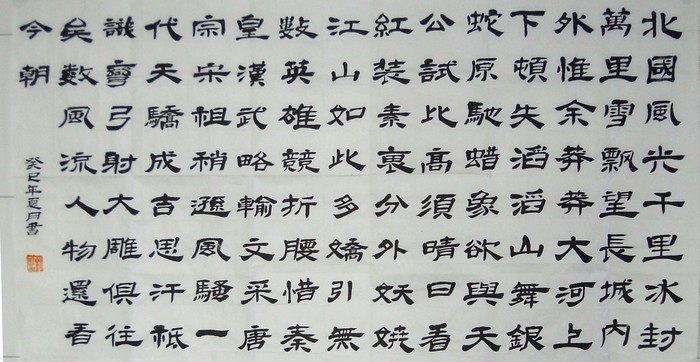 北國風光千里冰封
萬里雪飄望長城內
外惟余莽莽大河上
下頓失滔滔山舞銀
蛇原馳蜡象欲與天
公試比高須晴日看
紅裝素裹分外妖嬈
江山如此多嬌引無
數英雄競折腰惜秦
皇漢武略輸文采唐
宗宋祖稍遜風騷一
代天驕成吉思汗祗
識彎弓射大雕俱往
矣數風流人物還看
今朝
癸巳年夏月書